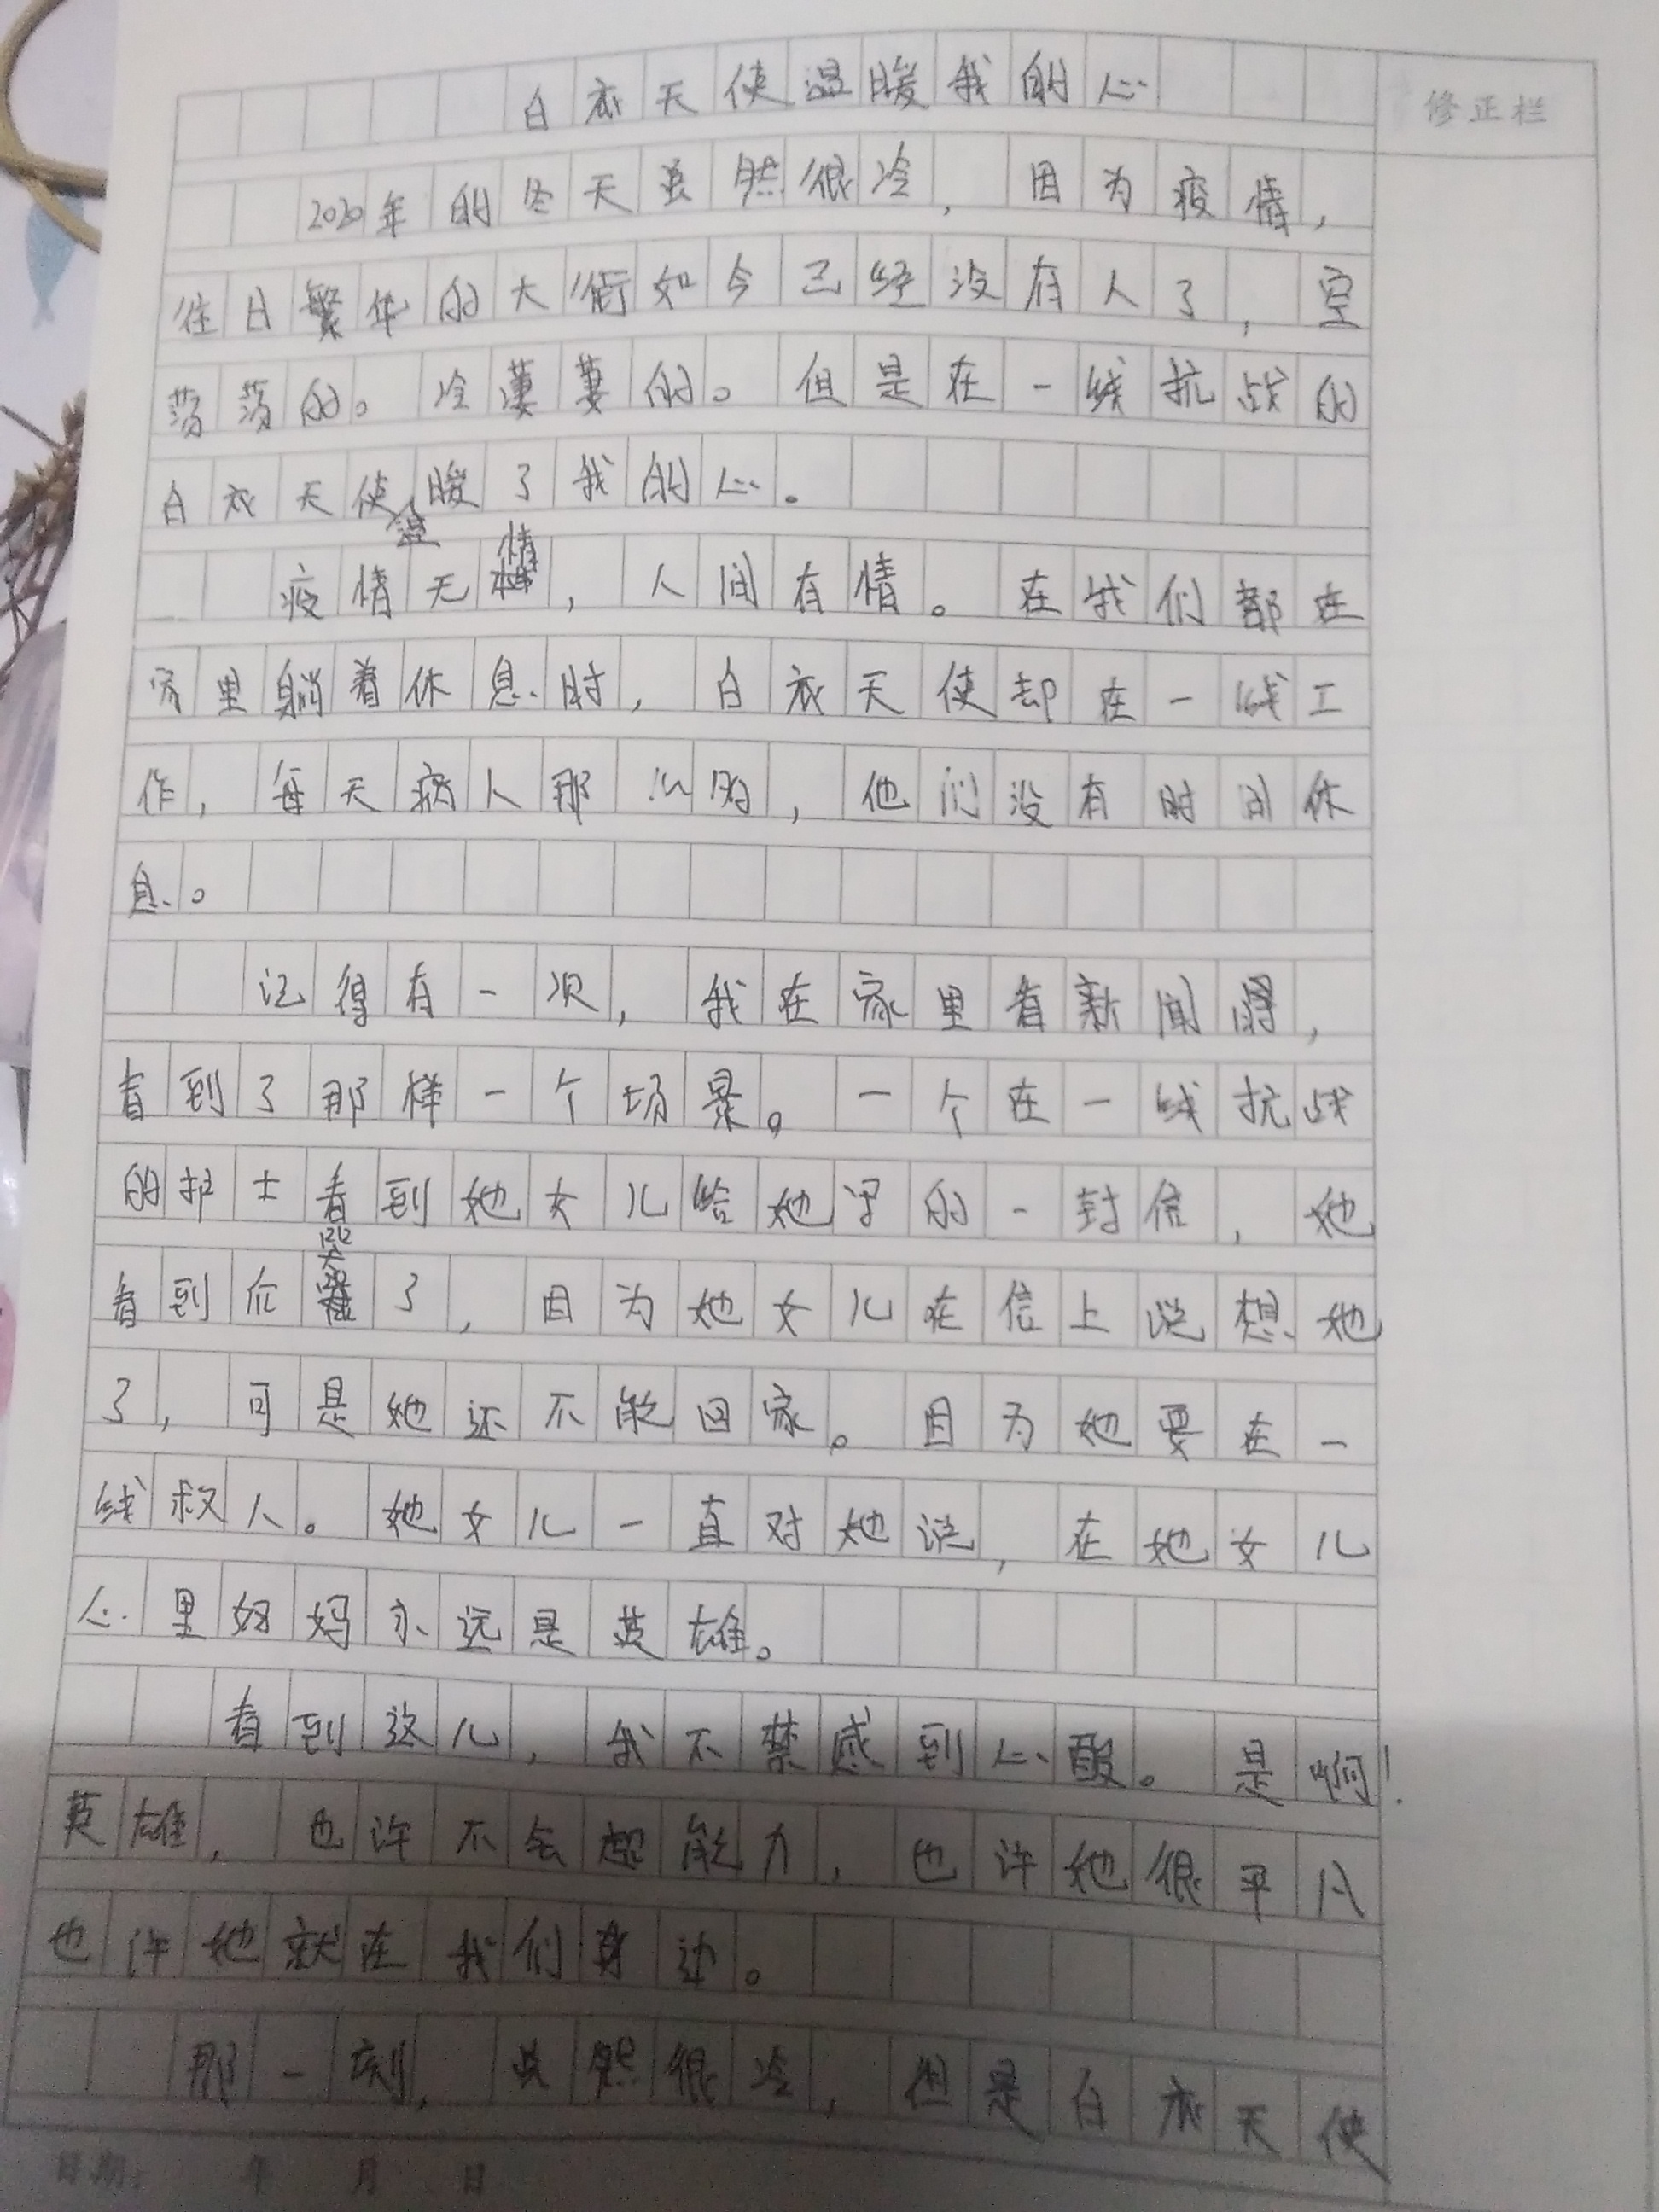 白衣天使温暖我的心
修正栏
2020年的冬天虽然很冷，因为疫情，
往日繁华的大街如今已经没有人了，空
荡荡的。冷萋萋的。但是在一线抗战的
白衣天使温暖了我的心。
疫情无情，人间有情。在我们都在
家里躺着休息时，白衣天使却在一线工
作，每天病人那么多，他们没有时间休
息。
记得有一次，我在家里看新闻时，
看到了那样一个场景。一个在一线抗战
的护士看到她女儿给她写的一封信，她
看到后哭了，因为她女儿在信上说想她
了，可是她还不能回家。因为她要在一
线救人。她女儿一直对她说，在她女儿
心里妈妈永远是英雄。
看到这儿，我不禁感到心酸。是啊！
英雄，也许不会超能力，也许她很平凡
也许她就在我们身边。
那一刻，虽然很冷，但是白衣天使
日期： 年 月 日